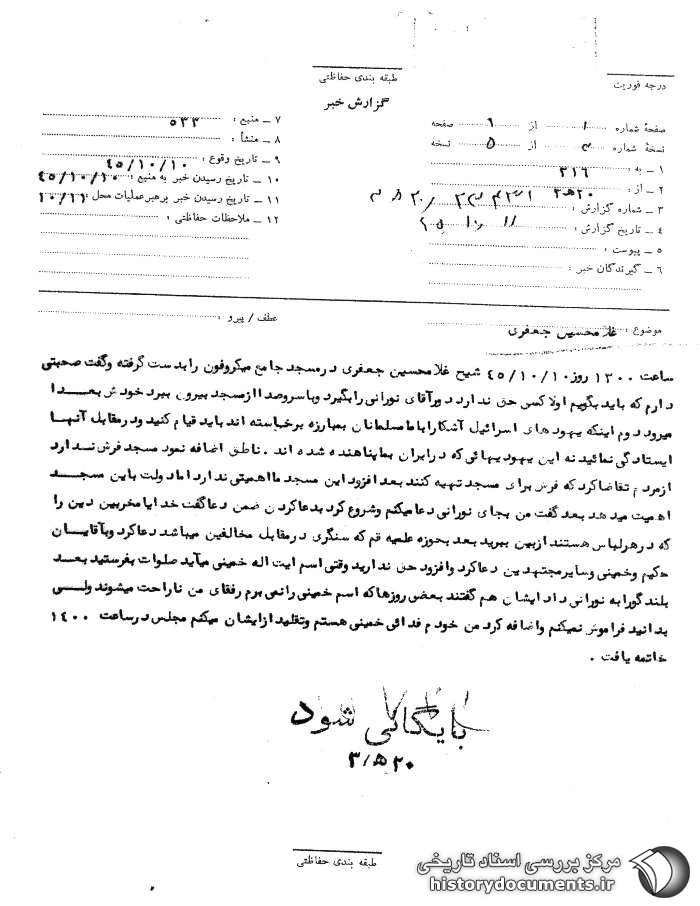 طبقه بندی حفاظتی
درجه فوریت
گزارش خبر
صفحهٔ شماره ۱ از ۱ صفحه
نسخهٔ شماره ۳ از ۵ نسخه
۱ ــ به : ۳۱۶
۲ ــ از : ۲۰ ه‍ ۳
۳ ــ شماره گزارش :
۴ ــ تاریخ گزارش :
۵ ــ پیوست :
۶ ــ گیرندگان خبر :
۷ ــ منبع : ۵۳۳
۸ ــ منشأ :
۹ ــ تاریخ وقوع : ۴۵/۱۰/۱۰
۱۰ ــ تاریخ رسیدن خبر به منبع : ۴۵/۱۰/۱۰
۱۱ ــ تاریخ رسیدن خبر برهبرعملیات محل : ۱۰/۱۱
۱۲ ــ ملاحظات حفاظتی :
موضوع : غلامحسین جعفری
عطف / پیرو :
ساعت ۱۳۰۰ روز ۴۵/۱۰/۱۰ شیخ غلامحسین جعفری درمسجد جامع میکروفون رابدست گرفته وگفت صحبتی
دارم که باید بگویم اولا کسی حق ندارد دورآقای نورانی رابگیرد وباسروصدا ازمسجد بیرون ببرد خودش بعدا
میرود دوم اینکه یهودهای اسرائیل آشکارا باما مسلمانان بمبارزه برخواسته اند باید قیام کنید ودرمقابل آنها
ایستادگی نمائید نه این یهودیهائی که درایران بماپناهنده شده اند . ناطق اضافه نمود مسجد فرش ندارد
ازمردم تقاضاکرد که فرش برای مسجد تهیه کنند بعد افزود این مسجد مااهمیتی ندارد اما دولت باین مسجد
اهمیت میدهد بعد گفت من بجای نورانی دعا میکنم وشروع کرد بدعاکردن ضمن دعاگفت خدایا مخربین دین را
که درهرلباس هستند ازبین ببرید بعد بحوزه علمیه قم که سنگری درمقابل مخالفین میباشد دعاکرد وبآقایان
حکیم وخمینی وسایرمجتهدین دعاکرد وافزود حق ندارید وقتی اسم ایت اله خمینی میآید صلوات بفرستید بعد
بلندگورا به نورانی داد ایشان هم گفتند بعضی روزها که اسم خمینی رانمی برم رفقای من ناراحت میشوند ولی
بدانید فراموش نمیکنم واضافه کرد من خودم فدائی خمینی هستم وتقلید ازایشان میکنم مجلس درساعت ۱۴۰۰
خاتمه یافت .
بایگانی شود
۲۰ ه‍/۳
طبقه بندی حفاظتی
مرکز بررسی اسناد تاریخی
historydocuments.ir